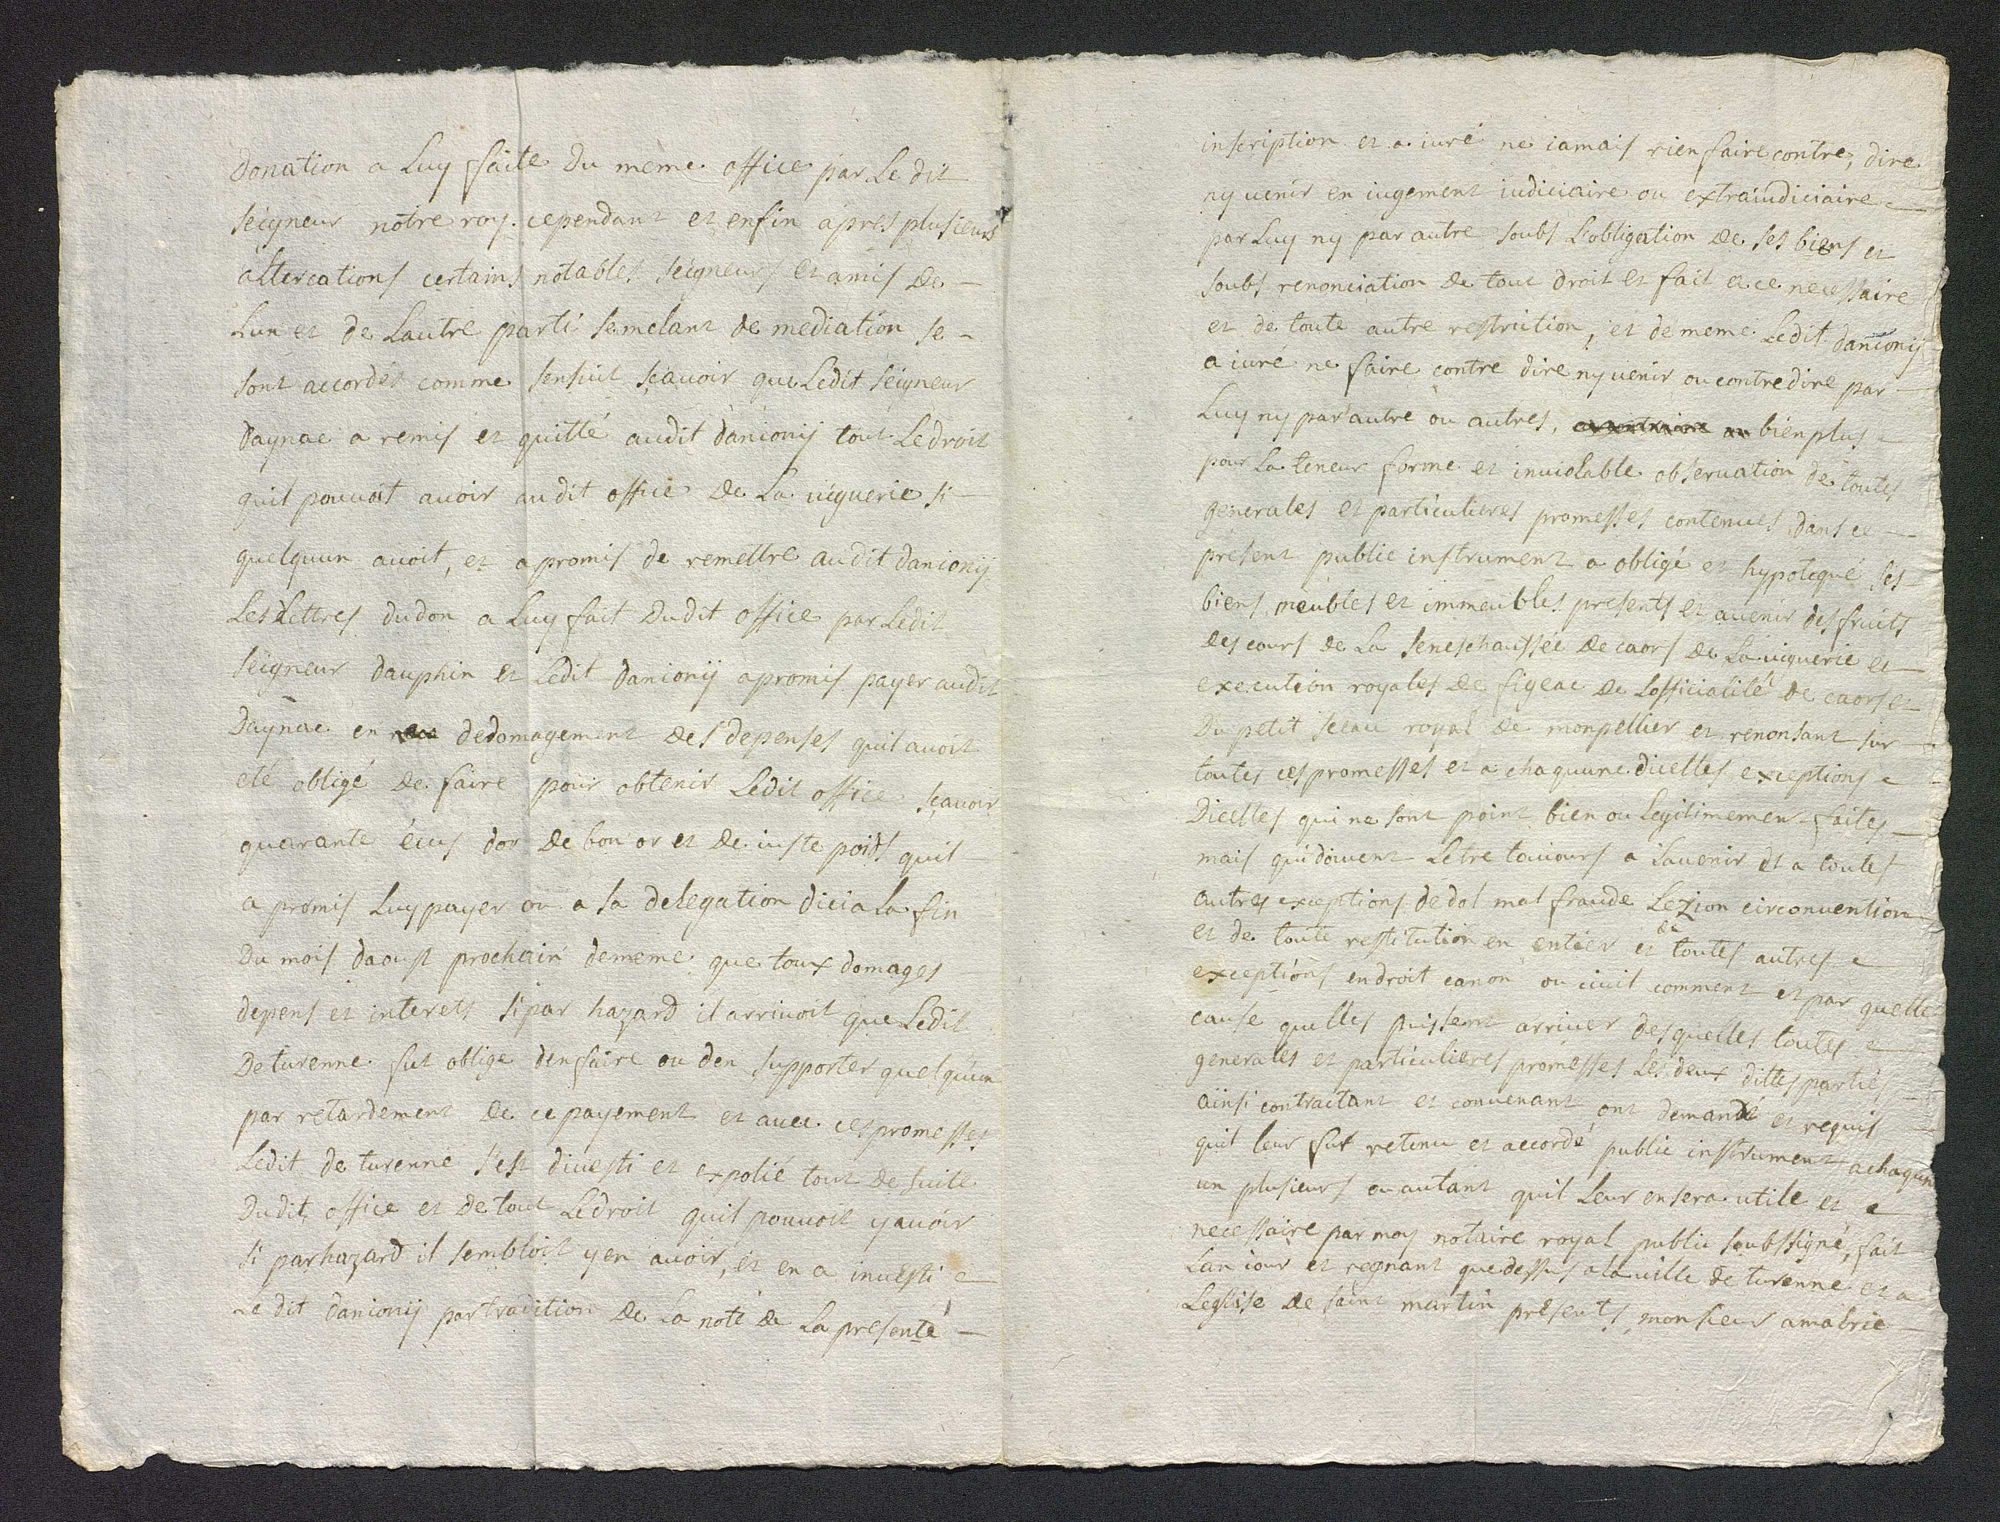 donation a Luy faite du meme office par Le dit
seigneur notre roy. cependant et enfin apres plusieurs
altercations certains notables seigneurs et amis de
Lun et de Lautre parti semelant de mediation se
sont accordés comme sensuit sçavoir que Ledit seigneur
daynac a remis et quitté audit danionij tout Le droit
quil pouvoit avoir audit office de La viguerie si
quelquun avoit, et a promis de remettre audit danionij
Les Lettres dudon a Luy fait dudit office par Ledit
seigneur dauphin et Ledit danionij a promis payer audit
daynac en dedomagement des depenses quil avoit
eté obligé de faire pour obtenir Ledit office sçavoir
quarante écus dor de bon or et de iuste poids quil
a promis Luy payer ou a sa delegation dicia La fin
du mois daoust prochain dememe que toux domages
depens et interets si par hazard il arrivoit que Ledit
de turenne fut oblige denfaire ou den supporter quelquun
par retardement de ce payement et avec ces promesses
Ledit de turenne s'est divesti et expolié tout de suite
dudit office et de tout Ledroit quil pouvoit y avoir
si parhazard il sembloit yen avoir, et en a investi
Le dit danionij par tradition de La note de La presente
inscription et a iuré ne iamais rien faire contre, dire
ny venir en iugement iudiciaire ou extraiudiciaire
par Luy ny par autre soubs L'obligation de ses biens et
soubs renonciation de tout droit et fait a ce necessaire
et de toute autre restriction, et dememe Ledit danionij
a iuré ne faire contre dire ny venir ou contredire par
Luy ny par autre ou autres, bien plus
pour La teneur forme et inviolable observation de toutes
generales et particulieres promesses contenues dans ce
present public instrument a obligé et hypotequé ses
biens meubles et immeubles presents et avenir des fruits
des cours de La seneschaussée de caors de La viguerie et
execution royales de figeac de Lofficialité de caors et
du petit sceau royal de monpellier et renonsant sur
toutes ces promesses et a chaquune dicelles exceptions
dicelles qui ne sont point bien ou Legitimement faites
mais qui doivent Letre toujours a L'avenir et a toutes
autres exceptions de dol mal fraude Lezion circonvention
et de toute restitution en entier et de toutes autres
exceptions endroit canon ou civil comment et par quelle
cause quelles puissent arriver desquelles toutes
generales et particulieres promesses Les deux dittes parties
ainsi contractant et convenant ont demandé et requis
quil leur fut retenu et accordé public instrument a chaqun
un plusieurs ou autant quil Leur en sera utile et
necessaire par moy notaire royal public soubssigné, fait
Lan iour et regnant quedessus a La ville de turenne et a
Leglise de saint martin présents monsieur amabric